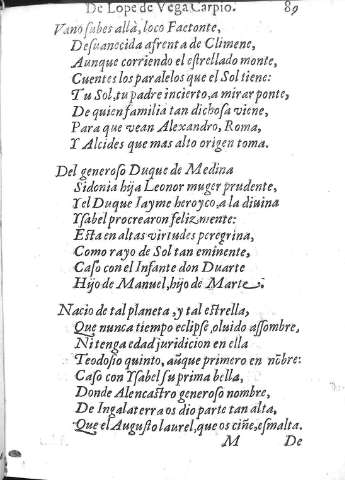 De Lope de Vega Carpio. 89
Vano subes allà, loco Faetonte,
Desuanecida afrenta de Climene,
Aunque corriendo el estrellado monte,
Cuentes los paralelos que el Sol tiene:
Tu Sol, tu padre incierto, a mirar ponte,
De quien familia tan dichosa viene,
Para que vean Alexandro, Roma,
Y Alcides que mas alto origen toma.
Del generoso Duque de Medina
Sidonia hija Leonor muger prudente,
Y el Duque Iayme heroyco, a la diuina
Ysabel procrearon felizmente:
Esta en altas virtudes peregrina,
Como rayo de Sol tan eminente,
Caso con el Infante don Duarte
Hijo de Manuel, hijo de Marte.
Nacio de tal planeta, y tal estrella,
Que nunca tiempo eclipse, oluido assombre,
Ni tenga edad juridicion en ella
Teodosio quinto, aũque primero en nõbre:
Caso con Ysabel su prima bella,
Donde Alencastro generoso nombre,
De Ingalaterra os dio parte tan alta,
Que el Augusto laurel, que os ciñe, esmalta.
M De